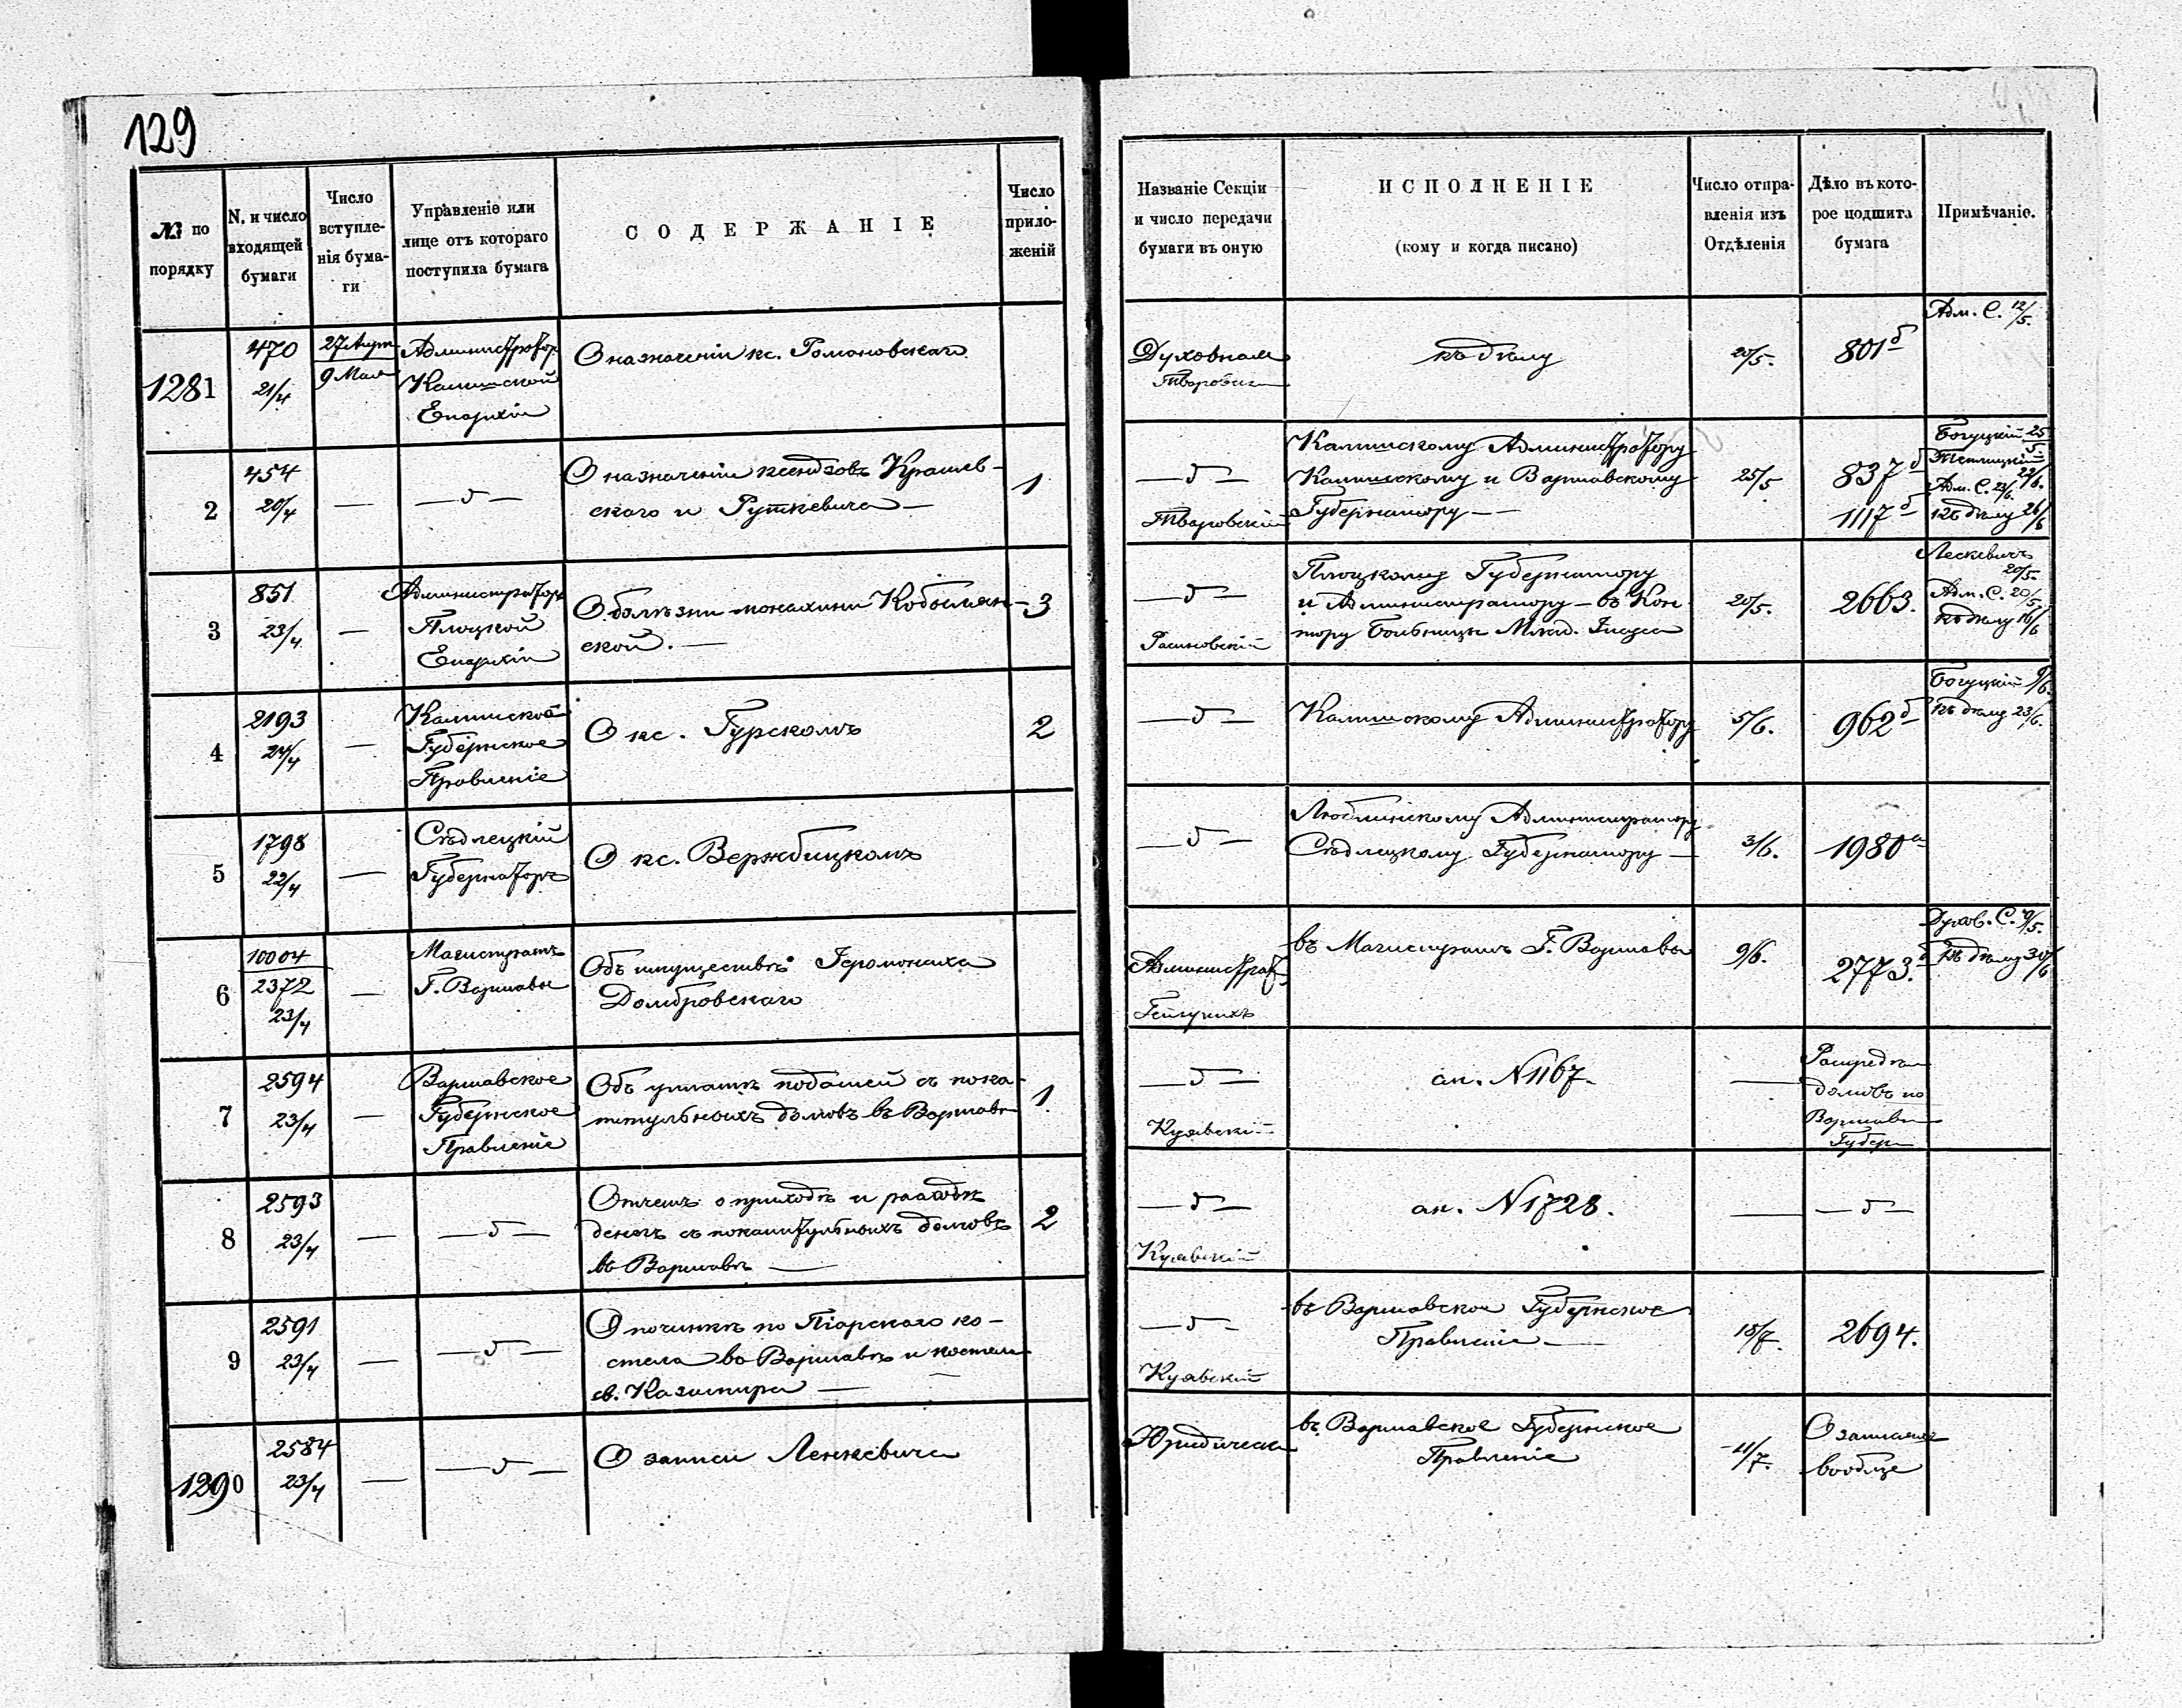 129
№ по порядку
N. и число входящей бумаги
Число вступленія бумаги
Управленіе или лице отъ котораго поступила бумага
СОДЕРЖАНІЕ
Число приложеній
Названіе Секціи и число передачи бумаги въ оную
ИСПОЛНЕНІЕ
(кому и когда писано)
Число отправленія изъ Отдѣленія
Дѣло въ которое подшита бумага
Примѣчаніе.
1281
470
21/4
27 Апр.
9 Мая
Администраторъ
Калишской
Епархіи
О назначеніи кс. Романовскаго
Духовная
къ дѣлу
20/5.
801 б
Адм. С. 12/5.
2
454
20/4
—
— 5 —
О назначеніи ксендзовъ Крашев-
скаго и Руткевича —
1
— 5 —
Тваровскій
Калишскому Администратору
Калишскому и Варшавскому
Губернатору —
25/5
837 б
1117 б
Богуцкій 25/5
Адм. С. 23/6.
къ дѣлу 26/6
3
851
23/4
—
Администраторъ
Плоцкой
Епархіи
О болѣзни монахини Кобылян-
ской. —
3
— 5 —
Плоцкому Губернатору
и Администратору — въ Кон-
тору Больницы Млад. Іисуса
20/5.
2663.
Лескевичъ
20/5.
Адм. С. 20/5
къ дѣлу 16/6
4
2193
24/4
—
Калишское
Губернское
Правленіе
О кс. Гурскомъ
2
— 5 —
Калишскому Администратору
5/6.
962 б
Богуцкій 9/6.
къ дѣлу 23/6.
5
1798
22/4
—
Сѣдлецкій
Губернаторъ
О кс. Вержбицкомъ
— 5 —
Люблинскому Администратору
Сѣдлецкому Губернатору —
3/6.
1980 а
6
10004
2372
23/4
—
Магистратъ
Г. Варшавы
Объ имуществѣ Іеромонаха
Домбровскаго
Администрат.
въ Магистратъ Г. Варшавы
9/6.
2773. б
Духов. С.
къ дѣлу 30/6
7
2594
23/4
—
Варшавское
Губернское
Правленіе
Объ уплатѣ податей съ пока-
питульныхъ домовъ въ Варшавѣ
1
— 5 —
Куявскій
ак. N 1167.
—
домовъ по
Варшавск.
Губер.
8
2593
23/4
—
— 5 —
Отчетъ о приходѣ и расходѣ
денегъ съ покапитульныхъ домовъ
въ Варшавѣ —
2
— 5 —
Куявскій
ак. N 1728.
—
— 5 —
9
2591
23/4
—
— 5 —
О починкѣ по Піарскаго ко-
стела въ Варшавѣ и костела
св. Казимира —
— 5 —
Куявскій
въ Варшавское Губернское
Правленіе —
18/7.
2694.
1290
2584
23/4
—
— 5 —
О записи Ленкевича
Юридическ.
въ Варшавское Губернское
Правленіе
11/7.
О записяхъ
вообще